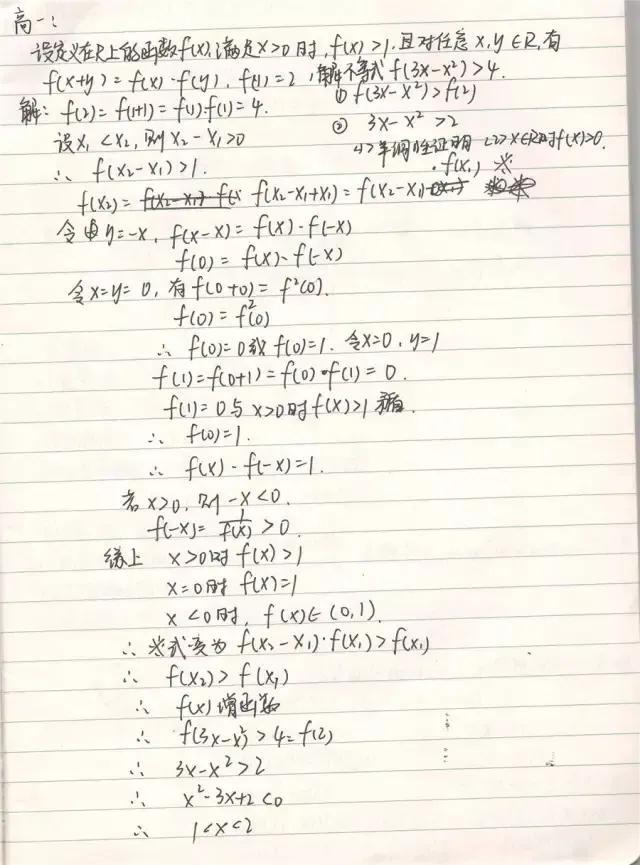 高一:
设定义在R上的函数f(x),满足x>0时,f(x)>1.且对任意x,y∈R,有
f(x+y)=f(x)·f(y), f(1)=2,解不等式f(3x-x²)>4.
解: f(2)=f(1+1)=f(1)·f(1)=4. ① f(3x-x²)>f(2)
设x₁<x₂,则x₂-x₁>0 ② 3x-x²>2
∴ f(x₂-x₁)>1. <1>单调性证明 <2>x∈R时f(x)>0.
f(x₂)=f(x₂-x₁+x₁)=f(x₂-x₁)·f(x₁) ※
令y=-x, f(x-x)=f(x)·f(-x)
f(0)=f(x)·f(-x)
令x=y=0,有f(0+0)=f²(0).
f(0)=f²(0)
∴ f(0)=0或f(0)=1. 令x=0,y=1
f(1)=f(0+1)=f(0)·f(1)=0.
f(1)=0与x>0时f(x)>1矛盾.
∴ f(0)=1.
∴ f(x)·f(-x)=1.
若x>0,则-x<0.
f(-x)=1/f(x)>0.
综上 x>0时f(x)>1
x=0时f(x)=1
x<0时,f(x)∈(0,1).
∴ ※式变为f(x₂-x₁)·f(x₁)>f(x₁)
∴ f(x₂)>f(x₁)
∴ f(x)增函数
∴ f(3x-x²)>4=f(2)
∴ 3x-x²>2
∴ x²-3x+2<0
∴ 1<x<2